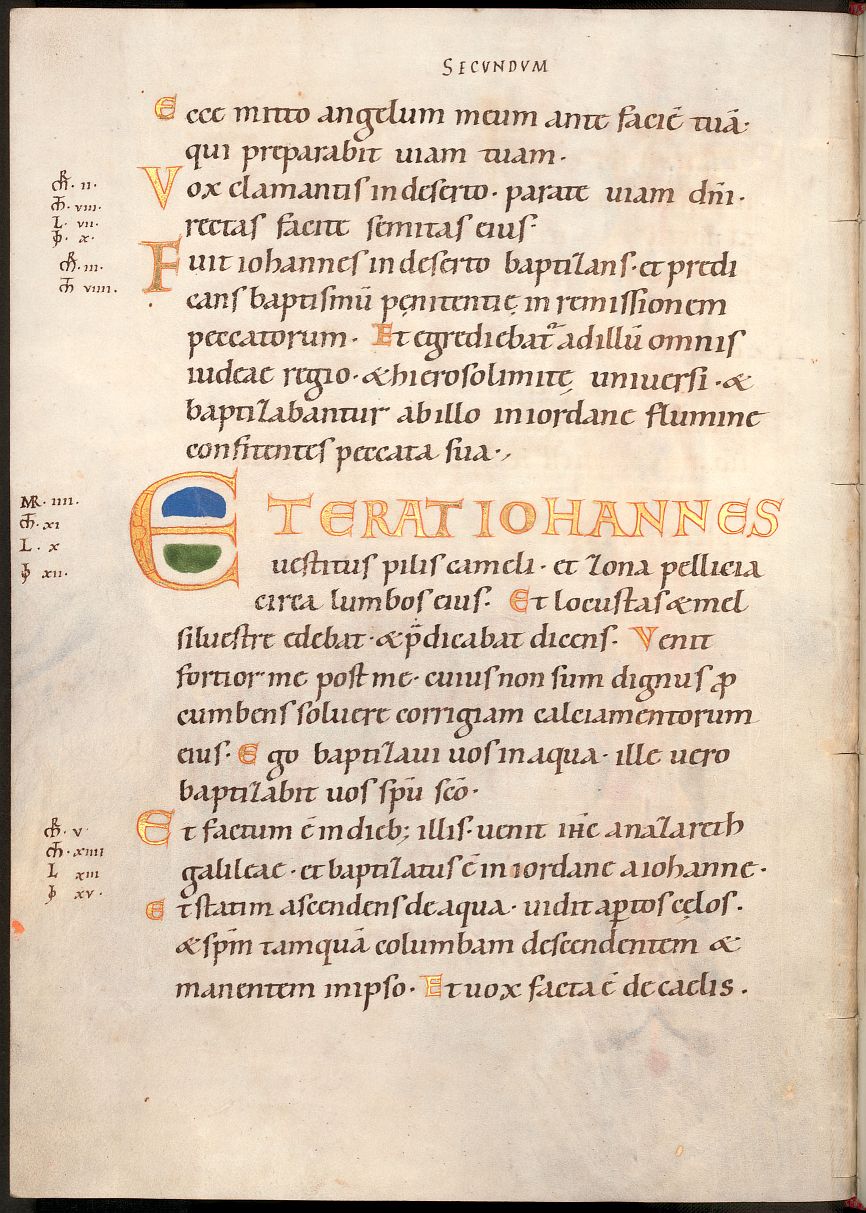 SECVNDVM
Ecce mitto angelum meum ante faciē tuā·
qui preparabit uiam tuam·
Vox clamantis in deserto· parate uiam dn̄i·
rectas facite semitas eius·
Fuit iohannes in deserto baptizans· et predi
cans baptismū pęnitentię in remissionem
peccatorum· Et egrediebat᷑ ad illū omnis
iudeae regio· & hierosolimitę uniuersi· &
baptizabantur ab illo in iordane flumine
confitentes peccata sua·,
ET ERAT IOHANNES
uestitus pilis cameli· et zona pellicia
circa lumbos eius· Et locustas & mel
siluestre edebat· & p̄dicabat dicens· Venit
fortior me post me· cuius non sum dignus ꝓ
cumbens soluere corrigiam calciamentorum
eius· Ego baptizaui uos in aqua· ille uero
baptizabit uos spū scō·
Et factum ē in dieb; illis· uenit ihc̄ a nazareth
galileae· et baptizatus ē in iordane a iohanne·
Et statim ascendens de aqua· uidit aꝑtos cęlos·
& spm̄ tamquā columbam descendentem &
manentem in ipso· Et uox facta ē de caelis·
II·
VIII·
L· VII·
X·
III·
VIIII·
MR· IIII·
XI
L· X
XII·
V
XIIII
L XIII
XV·